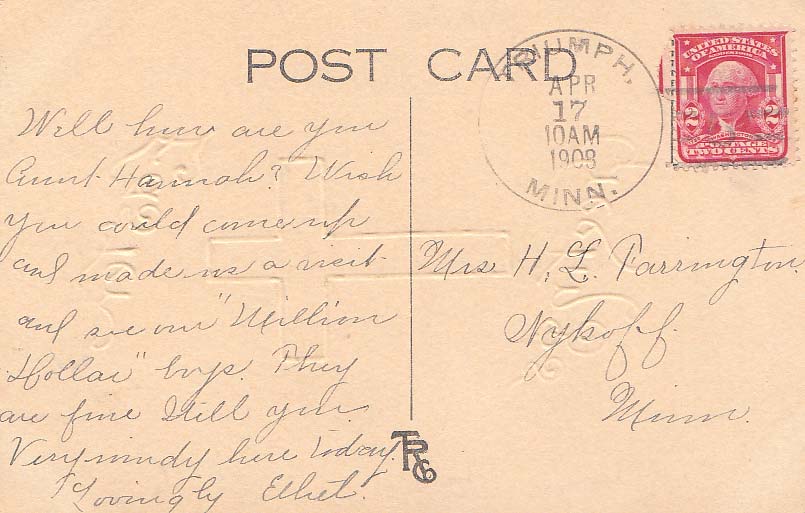 POST CARD
TRIUMPH,
APR
17
10AM
1908
MINN.
UNITED STATES
OF AMERICA
2 2
POSTAGE
TWO CENTS
Well how are you
Aunt Hannah? Wish
you could come up
and made us a visit
and see our "Million
Dollar" boys. They
are fine Tell you.
Very windy here today.
Lovingly Ethel.
Mrs H. L. Farrington.
Wykoff.
Minn.
TRCo